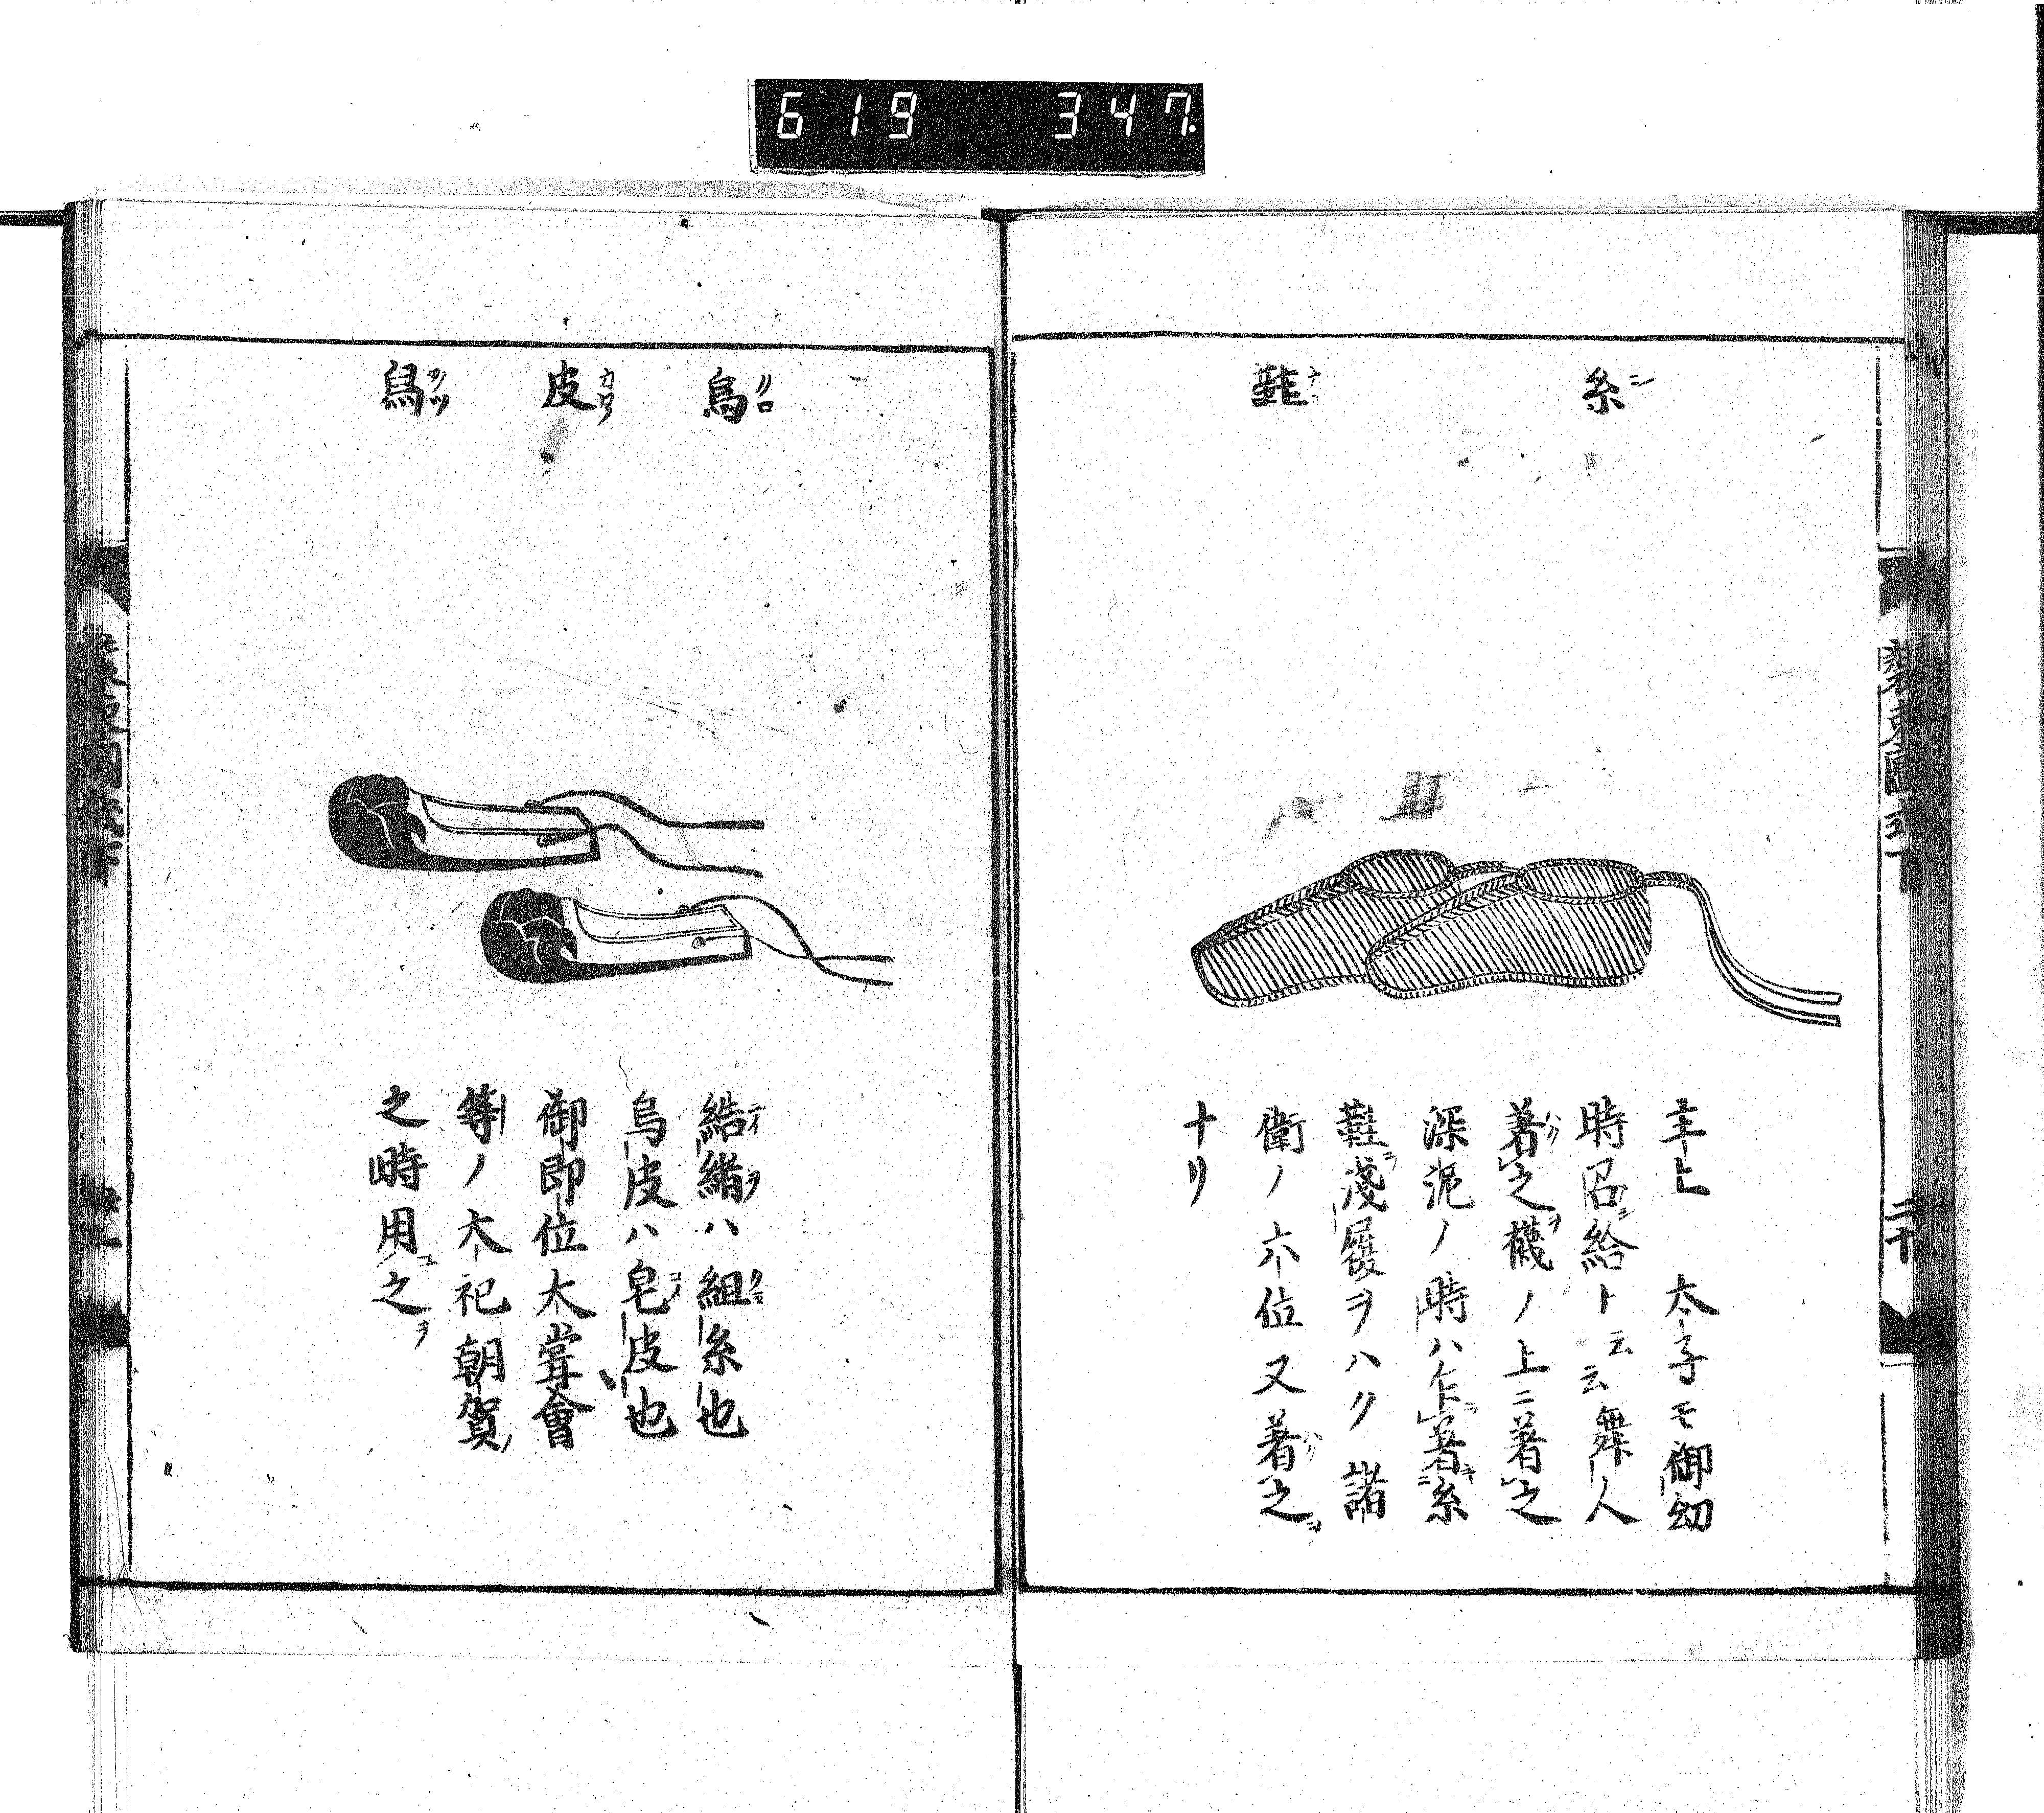 619 347.
糸
鞋
主上 太子モ御幼
時召給ト云云舞人
著之襪ノ上ニ著之
深泥ノ時ハ乍著糸
鞋淺履ヲハク諸
衛ノ六位又著之
ナリ
烏
皮
舄
結緒ハ組糸也
烏皮ハ皂皮也
御即位大嘗會
等ノ大祀朝賀
之時用之